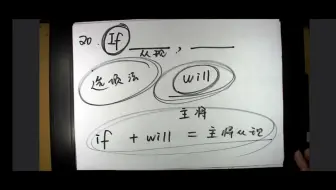 20. If ____ , ____
从现
选项法 will
主将
if + will = 主将从现